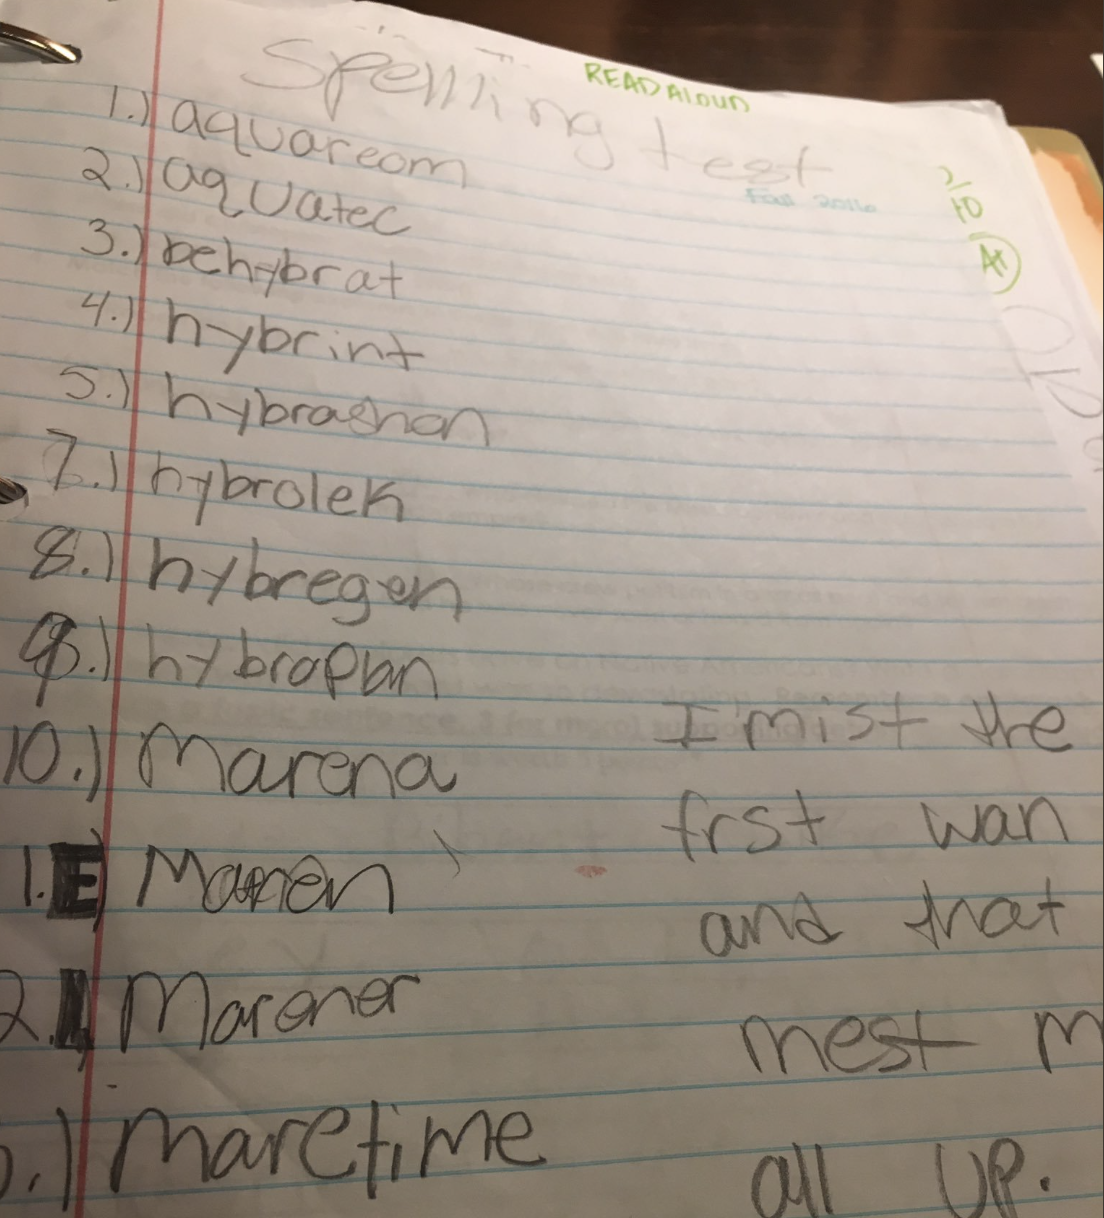 Spelling test
READ ALOUD
Fall 2016
1.) aquareom
2.) aquatec
3.) behybrat
4.) hybrint
5.) hybrashon
7.) hybrolek
8.) hybregen
9.) hybroplan
10.) Marena
1. E) Maren
2. Marener
.) maretime
I mist the
frst wan
and that
mest m
all up.